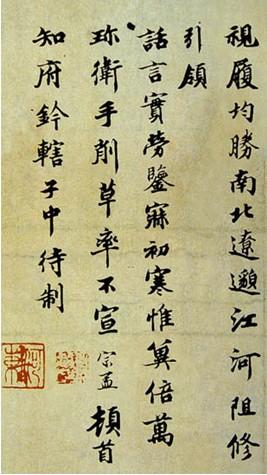 視履均勝南北遼邈江河阻修
引領
話言實勞鑒寐初寒惟冀倍萬
珎衛手削草率不宣 宗孟 頓首
知府鈐轄子中待制